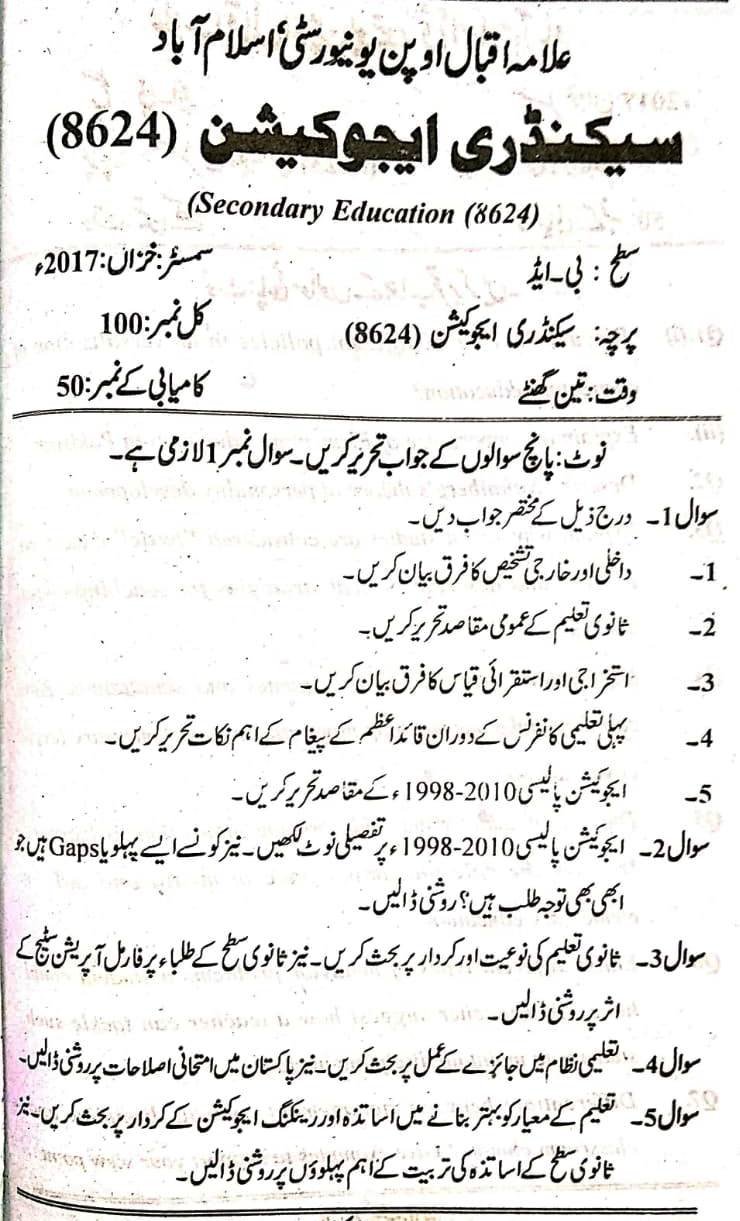 علامہ اقبال اوپن یونیورسٹی، اسلام آباد
سیکنڈری ایجوکیشن (8624)
(Secondary Education (8624)
سطح : بی۔ایڈ سمسٹر: خزاں: 2017ء
پرچہ: سیکنڈری ایجوکیشن (8624) کل نمبر: 100
وقت: تین گھنٹے کامیابی کے نمبر: 50
نوٹ: پانچ سوالوں کے جواب تحریر کریں۔ سوال نمبر 1 لازمی ہے۔
سوال 1۔ درج ذیل کے مختصر جواب دیں۔
1۔ داخلی اور خارجی تشخیص کا فرق بیان کریں۔
2۔ ثانوی تعلیم کے عمومی مقاصد تحریر کریں۔
3۔ استخراجی اور استقرائی قیاس کا فرق بیان کریں۔
4۔ پہلی تعلیمی کانفرنس کے دوران قائداعظم کے پیغام کے اہم نکات تحریر کریں۔
5۔ ایجوکیشن پالیسی 2010-1998ء کے مقاصد تحریر کریں۔
سوال 2۔ ایجوکیشن پالیسی 2010-1998ء پر تفصیلی نوٹ لکھیں۔ نیز کونسے ایسے پہلو یا Gaps ہیں جو
ابھی بھی توجہ طلب ہیں؟ روشنی ڈالیں۔
سوال 3۔ ثانوی تعلیم کی نوعیت اور کردار پر بحث کریں۔ نیز ثانوی سطح کے طلباء پر فارمل آپریشن سٹیج کے
اثر پر روشنی ڈالیں۔
سوال 4۔ تعلیمی نظام میں جائزے کے عمل پر بحث کریں۔ نیز پاکستان میں امتحانی اصلاحات پر روشنی ڈالیں۔
سوال 5۔ تعلیم کے معیار کو بہتر بنانے میں اساتذہ اور رینکنگ ایجوکیشن کے کردار پر بحث کریں۔ نیز
ثانوی سطح کے اساتذہ کی تربیت کے اہم پہلوؤں پر روشنی ڈالیں۔